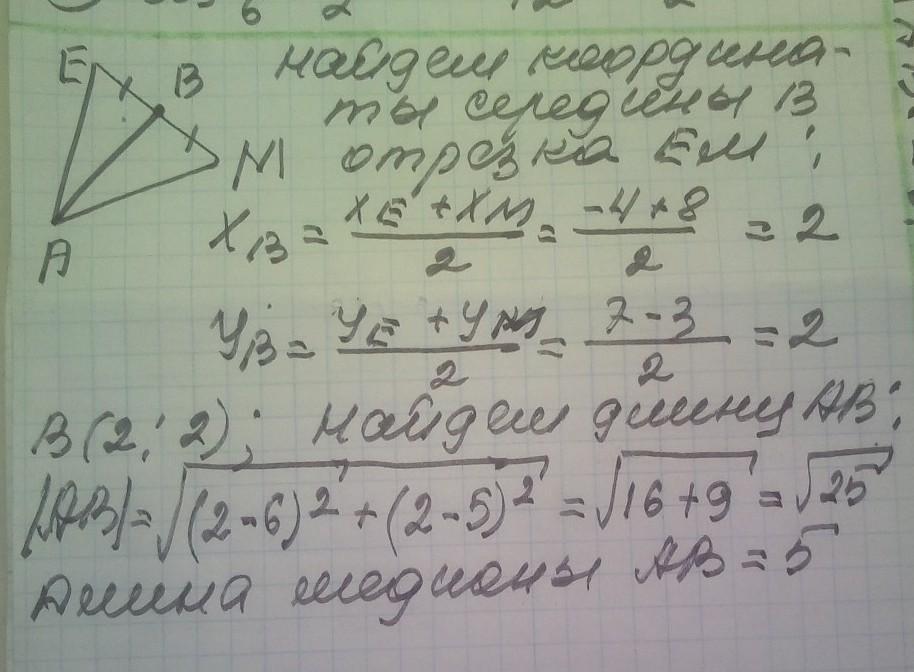 E B M A
найдем координа-
ты середины B
отрезка EM;
X_B = (X_E + X_M)/2 = (-4+8)/2 = 2
y_B = (y_E + y_M)/2 = (7-3)/2 = 2
B(2; 2); найдем длину AB:
|AB| = √((2-6)² + (2-5)²) = √(16+9) = √25
Длина медианы AB = 5